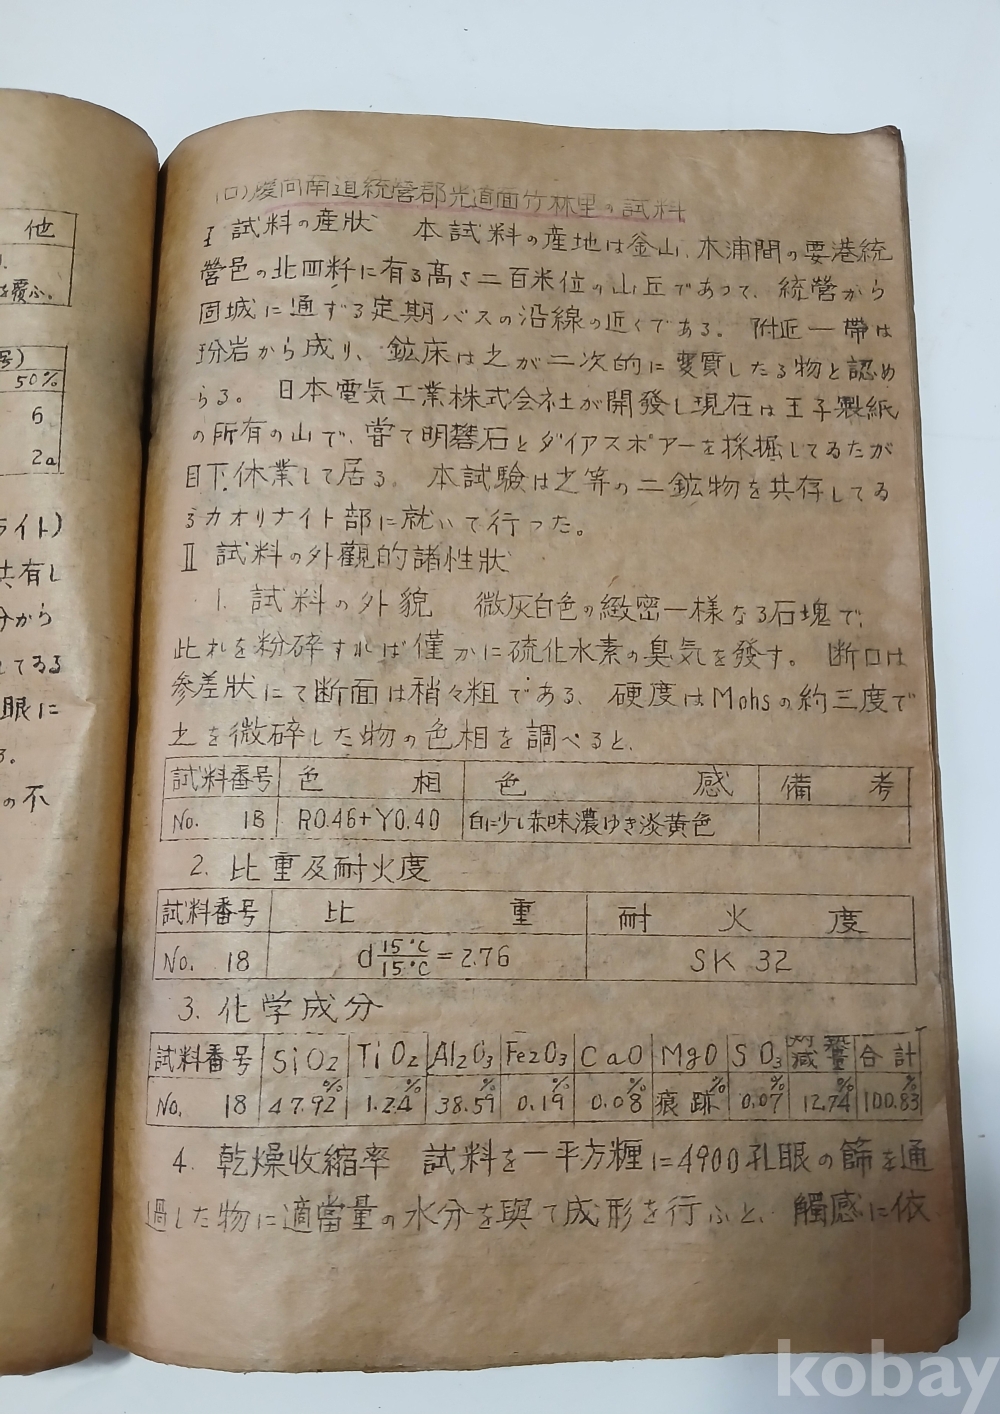 他
を覆ふ。
号)
50%
6
2a
ライト)
共有し
分から
してゐる
眼に
る。
の不
(ロ)慶尚南道統營郡光道面竹林里の試料
I 試料の産狀 本試料の産地は釜山、木浦間の要港統
營邑の北四粁に有る高さ二百米位の山丘であつて、統營から
固城に通ずる定期バスの沿線の近くである。附近一帶は
玢岩から成り、鉱床は之が二次的に変質したる物と認め
らる。 日本電気工業株式会社が開發し現在は王子製紙
の所有の山で、嘗て明礬石とダイアスポアーを採掘してゐたが
目下休業して居る。 本試驗は之等の二鉱物を共存してゐ
るカオリナイト部に就いて行つた。
II 試料の外觀的諸性狀
1. 試料の外貌 微灰白色の緻密一樣なる石塊で、
此れを粉碎すれば僅かに硫化水素の臭気を發す。 断口は
参差狀にて断面は稍々粗である、 硬度はMohsの約三度で
之を微碎した物の色相を調べると、
試料番号 色相 色感 備考
No. 18 R0.46+Y0.40 白に少し赤味濃ゆき淡黄色
2. 比重及耐火度
試料番号 比重 耐火度
No. 18 d15°C/15°C=2.76 SK 32
3. 化学成分
試料番号 SiO2 TiO2 Al2O3 Fe2O3 CaO MgO SO3 灼熱減量 合計
No. 18 47.92% 1.24% 38.59% 0.19% 0.08% 痕跡% 0.07% 12.74% 100.83%
4. 乾燥收縮率 試料を一平方糎に4900孔眼の篩を通
過した物に適當量の水分を與て成形を行ふと、觸感に依
kobay